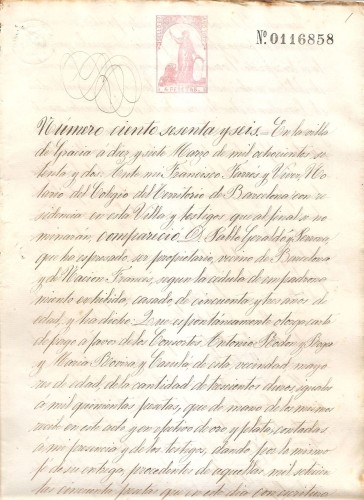 Nº 0116858
Número ciento sesenta y seis.= En la villa
de Gracia a diez y siete Marzo de mil ochocientos se
tenta y dos: Ante mi Francisco Parres y Vives, No
tario del Colegio del Territorio de Barcelona con re
sidencia en esta Villa y testigos que al final se no
minarán, comparecio D. Pablo
que ha espresado ser propietario, vecino de Barcelona
y de Nacion Frances, segun la cedula de empadrona
miento exhibida, casado de cincuenta y tres años de
edad, y ha dicho: Que espontáneamente otorga carta
de pago a favor de los Consortes, Antonio y
y Maria y de esta vecindad mayo
res de edad, de la cantidad de trescientos duros iguales
á mil quinientas pesetas, que de mano de los mismos
recibe en este acto y en efectivo de oro y plata, contadas
á mi presencia y de los testigos, dando por lo mismo
de su entrega, procedentes de aquellas mil
cientas cincuenta pesetas que en